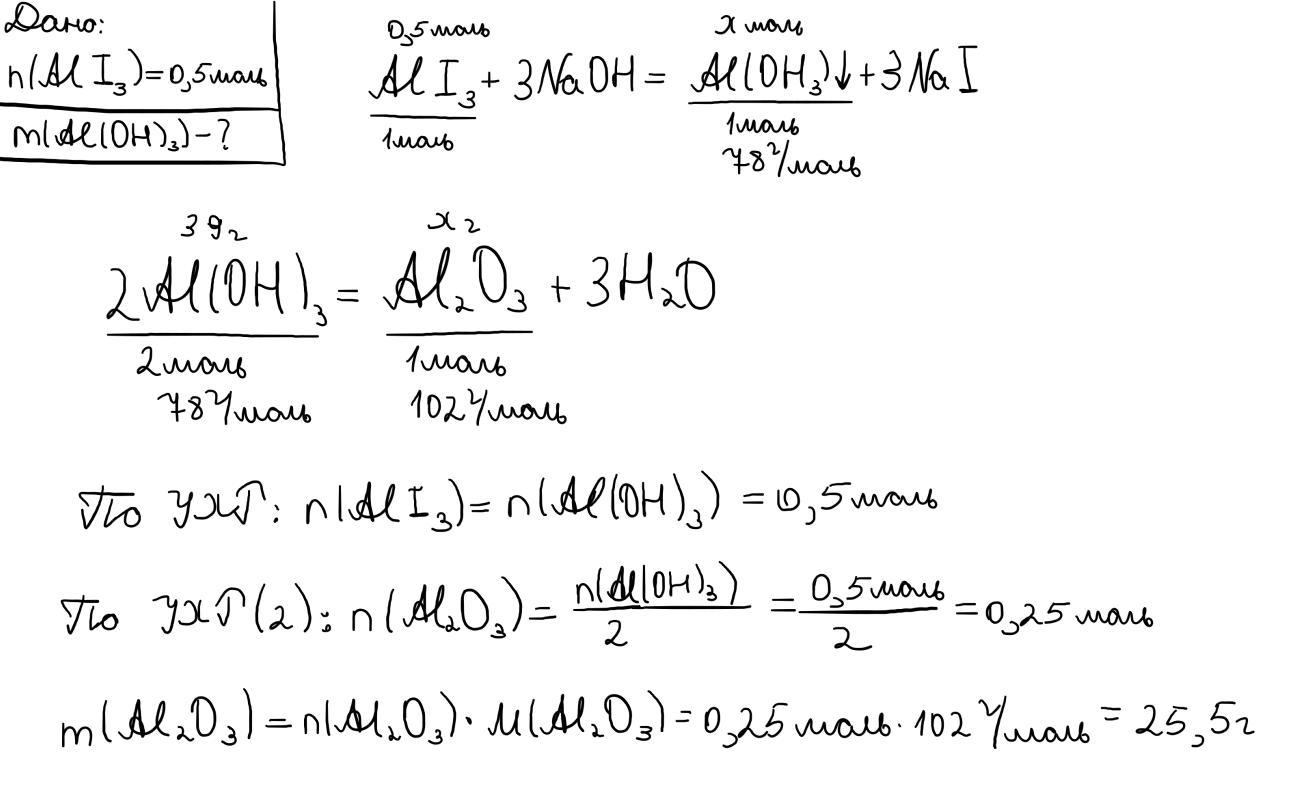 Дано:
n(AlI₃)=0,5моль
m(Al(OH)₃)-?
0,5моль x моль
AlI₃+3NaOH=Al(OH₃)↓+3NaI
1моль 1моль
78г/моль
39г xг
2Al(OH)₃=Al₂O₃+3H₂O
2моль 1моль
78г/моль 102г/моль
По УХР: n(AlI₃)=n(Al(OH)₃)=0,5моль
По УХР(2): n(Al₂O₃)=n(Al(OH)₃)/2=0,5моль/2=0,25моль
m(Al₂O₃)=n(Al₂O₃)·M(Al₂O₃)=0,25моль·102г/моль=25,5г